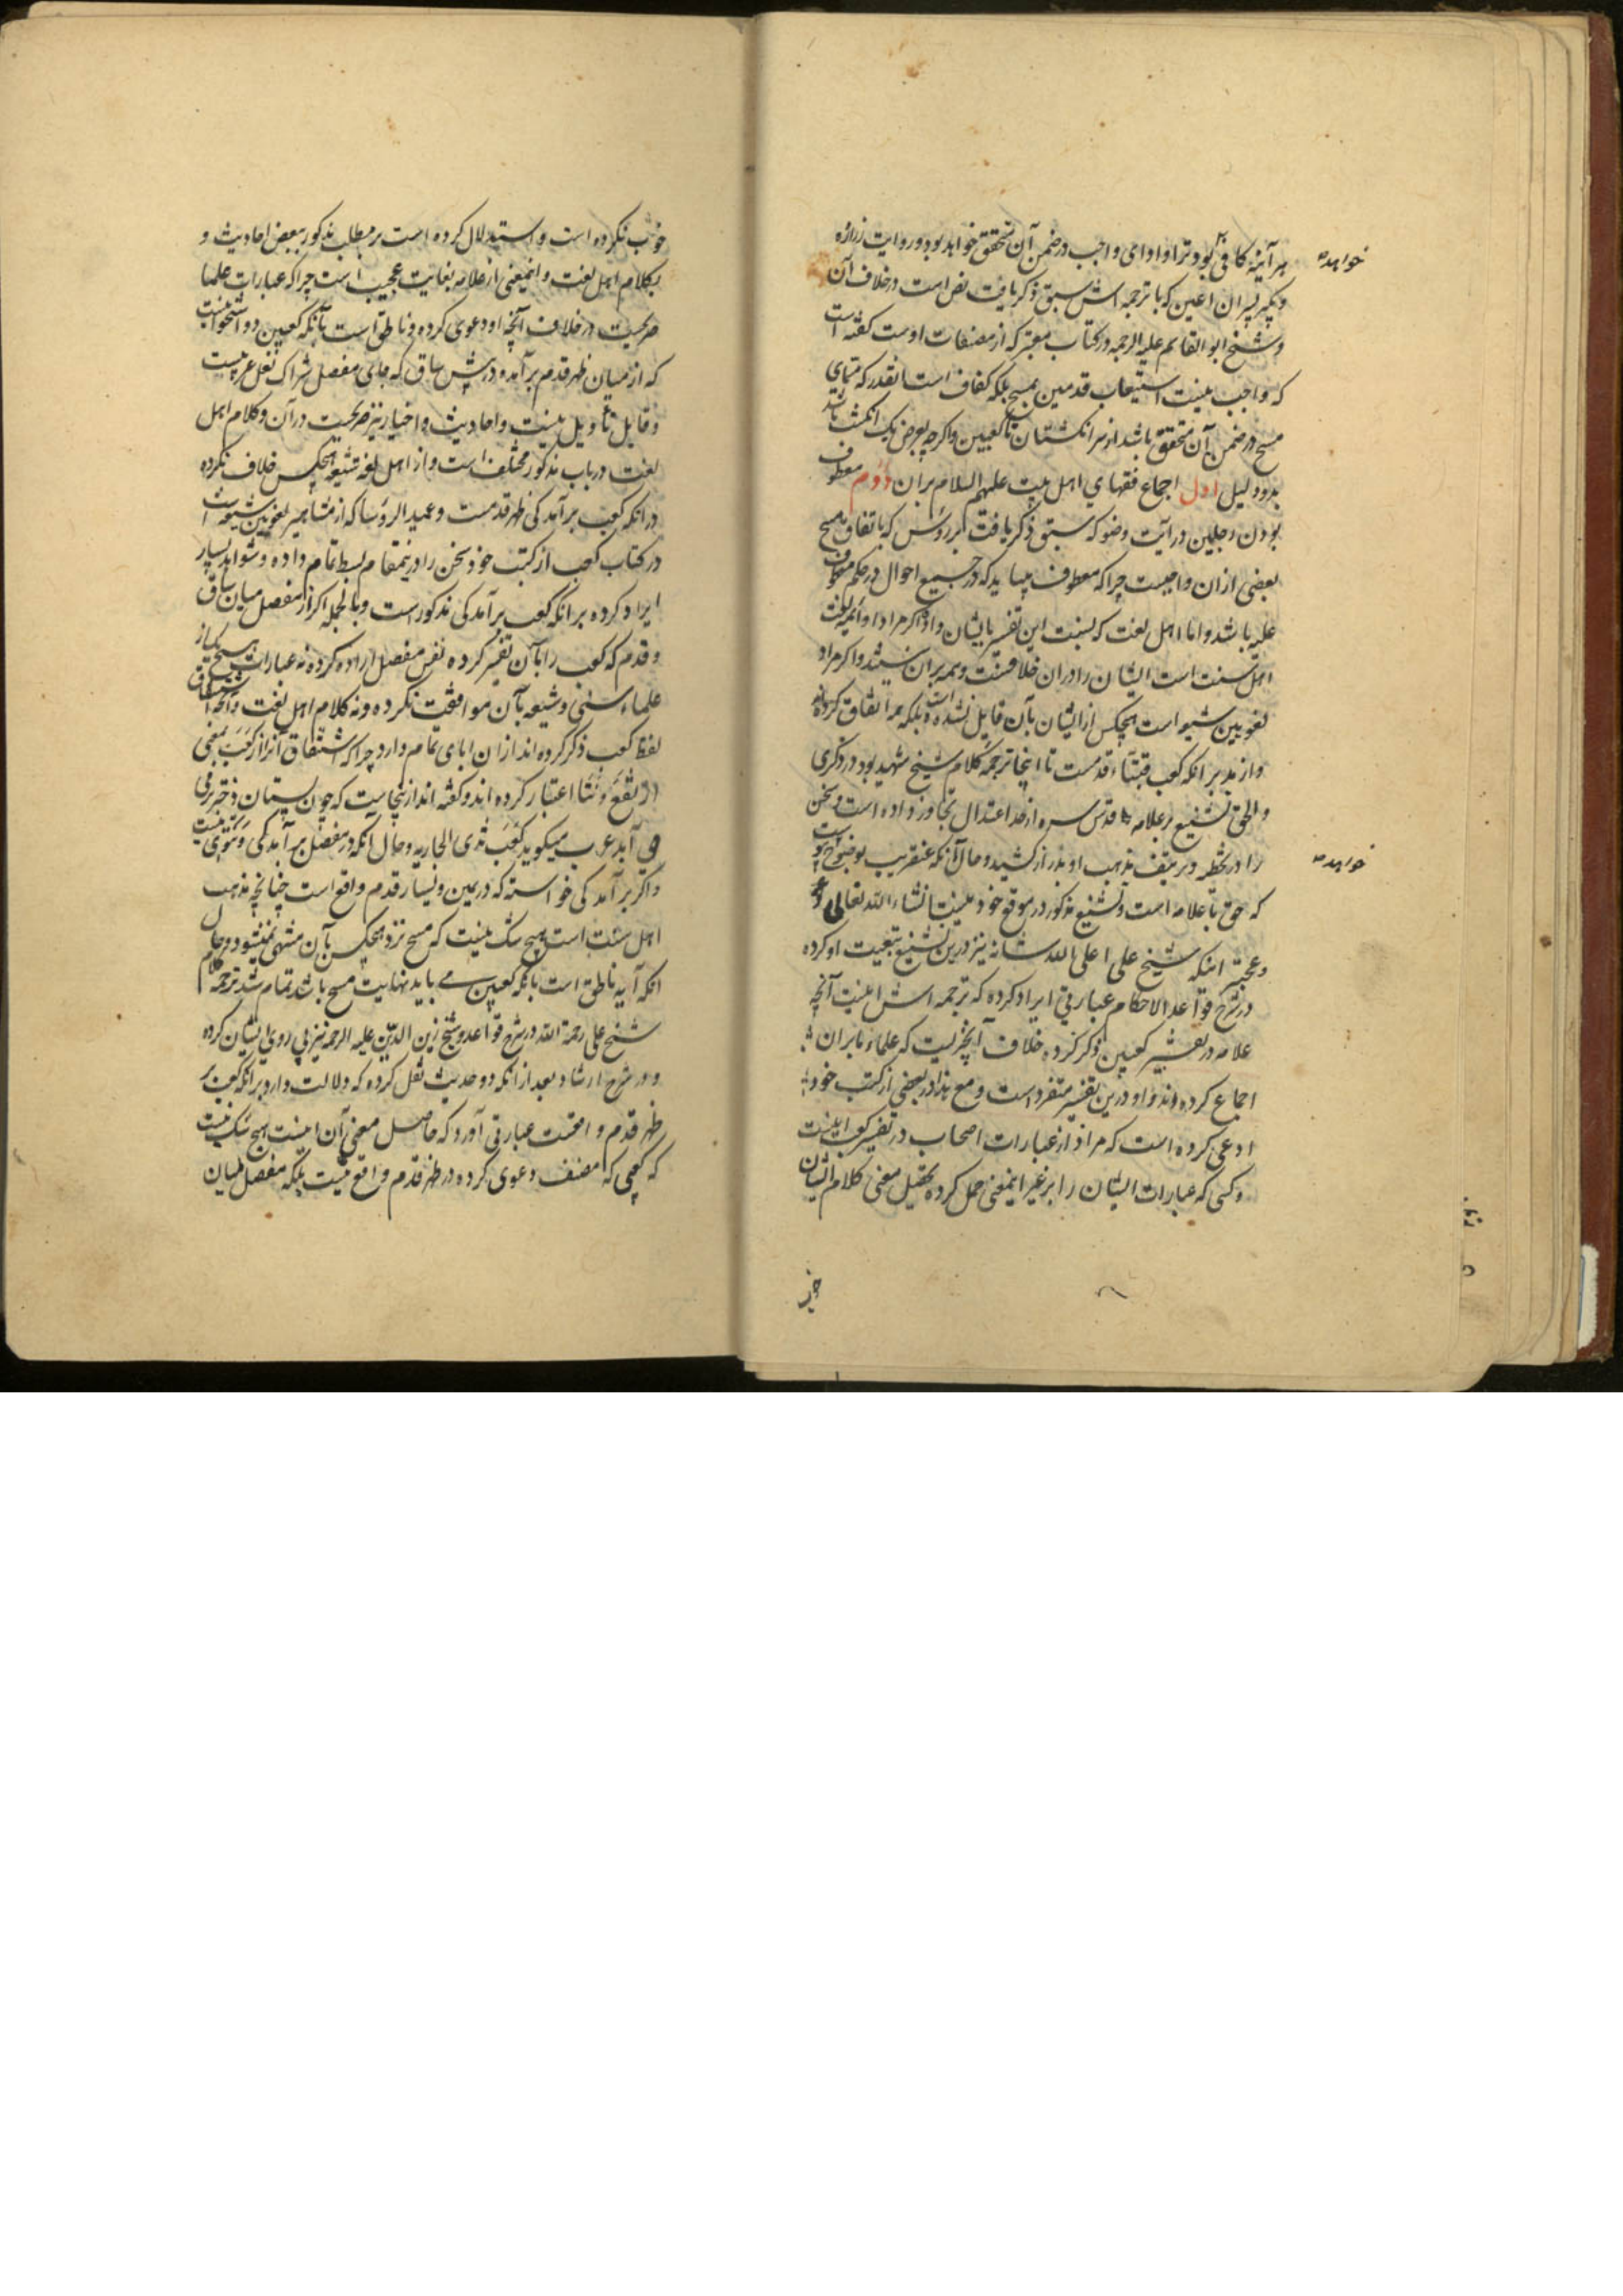 هر آینه کافی بود ترا و ادای واجب در ضمن آن متحقق خواهد بود و روایت زراره
خواهد
و بکیر پسران اعین که با ترجمه اش سبق ذکر یافت نص است در خلاف آن
و شیخ ابو القاسم علیه الرحمه در کتاب معتبر که از مصنفات اوست گفته است
که واجب نیست استیعاب قدمین بمسح بلکه کفاف است آنقدر که مسمای
مسح در ضمن آن متحقق باشد از سر انگشتان تا کعبین و اگرچه بعرض یک انگشت باشد
بدو دلیل اول اجماع فقهای اهل بیت علیهم السلام بران دوم معطوف
بودن رجلین در آیت وضو که سبق ذکر یافت بر رؤس که باتفاق مسح
بعضی از ان واجبست چرا که معطوف میباید که در جمیع احوال در حکم معطوف
علیه باشد و اما اهل لغت که نسبت این تفسیر بایشان داد اگر مراد او ائمه لغت
اهل سنت است ایشان را در ان خلافست و همه بر ان نیستند و اگر مراد
لغویین شیعه است هیچکس از ایشان بآن قایل نشده است بلکه همه اتفاق کرده اند
بر انکه کعب قبتا، قدمست تا اینجا ترجمه کلام شیخ شهید بود در ذکری
و الحق تشنیع بر علامه قدس سره از حد اعتدال تجاوز داده است و سخن
را در تخطئه و تزییف مذهب او دراز کشیده و حال آنکه عنقریب بوضوح
خواهد
که حق با علامه است و تشنیع مذکور در موقع خود نیست انشاء الله تعالی و
عجبتر اینکه شیخ علی اعلی الله شانه نیز درین تشنیع تبعیت او کرده
در شرح قواعد الاحکام عبارتی ایراد کرده که ترجمه اش اینست آنچه
علامه در تفسیر کعبین ذکر کرده خلاف آنچیزیست که علماء ما بران
اجماع کرده اند و او درین تفسیر متفرد است و مع هذا در بعضی از کتب خود
ادعی کرده است که مراد از عبارات اصحاب در تفسیر کعب اینست
و کسی که عبارات ایشان را بر غیر اینمعنی حمل کرده تحصیل معنی کلام ایشان
خوب
خوب نکرده است و استدلال کرده است بر مطلب مذکور ببعض احادیث و
بکلام اهل لغت و اینمعنی از علامه بغایت عجیب است چرا که عبارات علما
صریحست در خلاف آنچه او دعوی کرده و ناطق است بآنکه کعبین دو استخوانست
که از میان ظهر قدم برآمده در پیش ساق که جای مفصل شراک نعل عربیست
و قابل تأویل نیست و احادیث و اخبار نیز صریحست در آن و کلام اهل
لغت در باب مذکور مختلف است و از اهل لغه شیعه هیچکس خلاف نکرده
در انکه کعب برآمدگی ظهر قدمست و عمید الرؤسا که از مشاهیر لغویین شیعه است
در کتاب کعب از کتب خود سخن را درینمقام بسط تمام داده و شواهد بسیار
ایراد کرده بر انکه کعب برآمدگی مذکورست و بالجمله اگر از مفصل میان ساق
و قدم که کعب را بآن تفسیر کرده نفس مفصل اراده کرده نه عبارات هیچیک از
علماء سنی و شیعه بآن موافقت نکرده و نه کلام اهل لغت و آنچه اشتقاق
لفظ کعب ذکر کرده اند از ان ابای تمام دارد چرا که اشتقاق آنرا از کعب بمعنی
ارتفع و نتا اعتبار کرده اند و گفته اند ازینجاست که چون پستان دختر بر
می آید عرب میگوید کعب ثدی الجاریه و حال آنکه در مفصل برآمدگی و نتوی نیست
و اگر برآمدگی خواسته که در یمین و یسار قدم واقع است چنانچه مذهب
اهل سنت است هیچ شک نیست که مسح نزد هیچکس بآن منتهی نمیشود و حال
انکه آیه ناطق است بانکه کعبین می باید نهایت مسح باشد تمام شد ترجمه کلام
شیخ علی رحمة الله در شرح قواعد و شیخ زین الدین علیه الرحمه نیز پی روی ایشان کرده
و در شرح ارشاد بعد از انکه دو حدیث نقل کرده که دلالت دارد بر انکه کعب بر
ظهر قدم واقعست عبارتی آورده که حاصل معنی آن اینست هیچ شک نیست
که کعبی که مصنف دعوی کرده در ظهر قدم واقع نیست بلکه مفصل میان